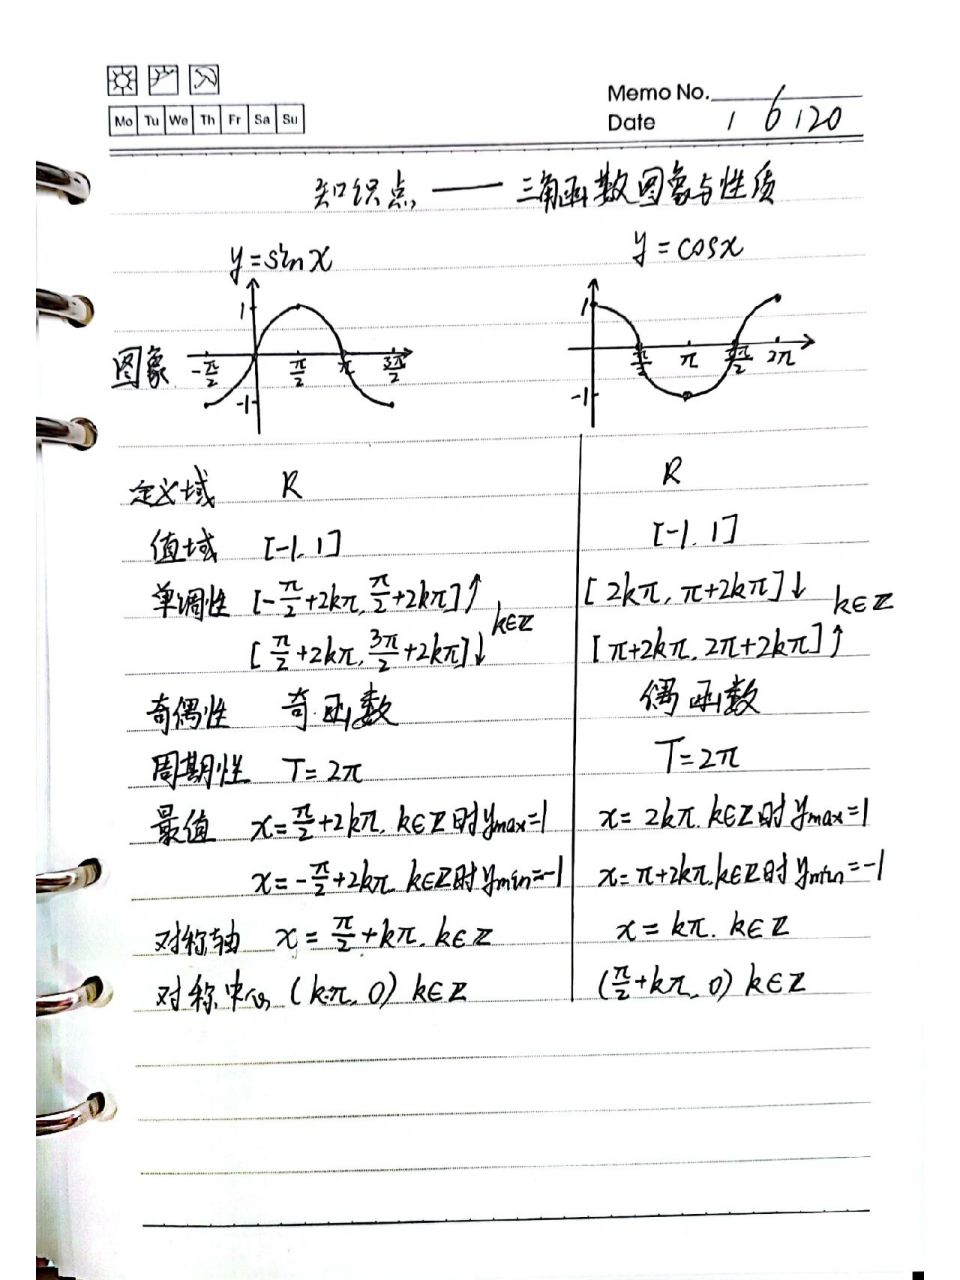 Memo No.
Mo Tu We Th Fr Sa Su
Date 1 6 120
知识点 —— 三角函数图象与性质
y=sinx y=cosx
图象
1 -1 -π/2 π/2 π 3π/2
1 -1 π/2 π 3π/2 2π
定义域 R R
值域 [-1,1] [-1,1]
单调性 [-π/2+2kπ,π/2+2kπ]↑ [2kπ,π+2kπ]↓
k∈Z k∈Z
[π/2+2kπ,3π/2+2kπ]↓ [π+2kπ,2π+2kπ]↑
奇偶性 奇函数 偶函数
周期性 T=2π T=2π
最值 x=π/2+2kπ,k∈Z时ymax=1 x=2kπ,k∈Z时ymax=1
x=-π/2+2kπ,k∈Z时ymin=-1 x=π+2kπ,k∈Z时ymin=-1
对称轴 x=π/2+kπ,k∈Z x=kπ,k∈Z
对称中心 (kπ,0) k∈Z (π/2+kπ,0) k∈Z